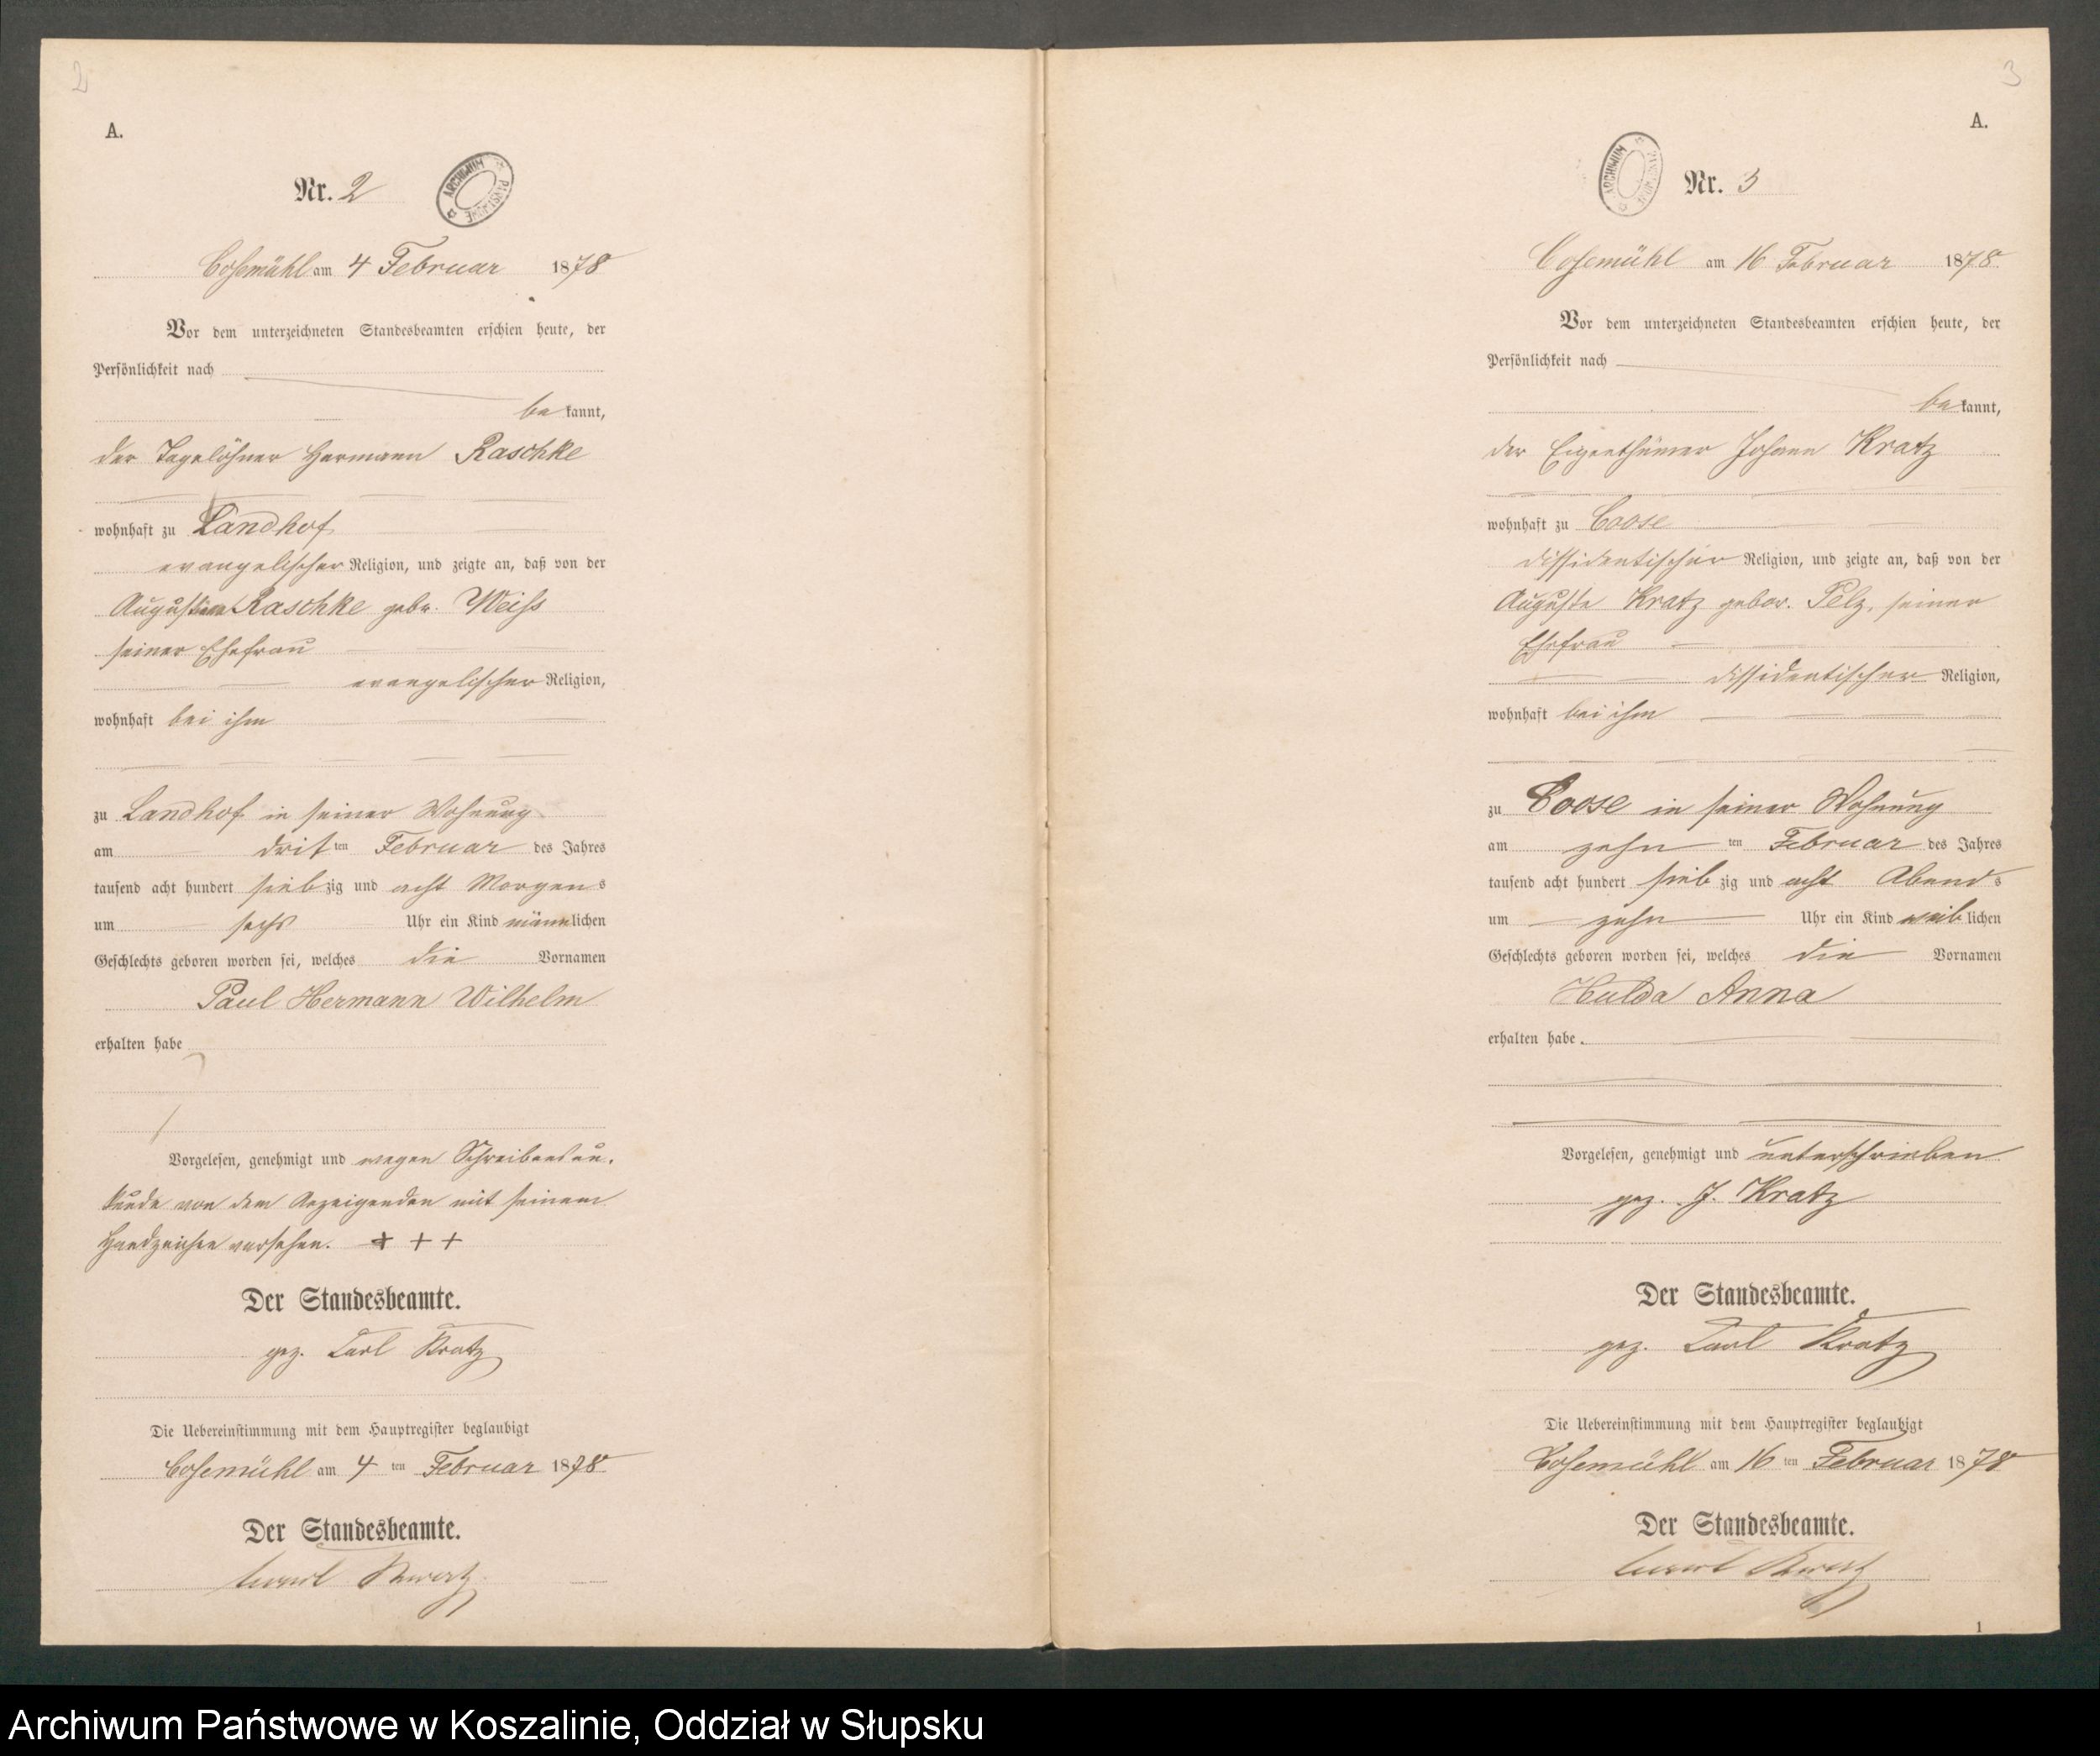 2
A.
Nr. 2
ARCHIWUM PAŃSTWOWE
Cosemühl am 4 Februar 1878
Vor dem unterzeichneten Standesbeamten erschien heute, der
Persönlichkeit nach
be kannt,
der Tagelöhner Hermann Raschke
wohnhaft zu Landhof
evangelischer Religion, und zeigte an, daß von der
Raschke geb. Weiss
seiner Ehefrau
evangelischer Religion,
wohnhaft bei ihm
zu Landhof in seiner Wohnung
am drit ten Februar des Jahres
tausend acht hundert sieb zig und acht Morgens
um sechs Uhr ein Kind männlichen
Geschlechts geboren worden sei, welches die Vornamen
Paul Hermann Wilhelm
erhalten habe
Vorgelesen, genehmigt und wegen Schreibensun-
kunde von dem Anzeigenden mit seinem
Handzeichen versehen. + + +
Der Standesbeamte.
gez. Carl Kratz
Die Uebereinstimmung mit dem Hauptregister beglaubigt
Cosemühl am 4 ten Februar 1878
Der Standesbeamte.
Carl Kratz
3
A.
ARCHIWUM PAŃSTWOWE
Nr. 3
Cosemühl am 16 Februar 1878
Vor dem unterzeichneten Standesbeamten erschien heute, der
Persönlichkeit nach
be kannt,
der Eigenthümer Johann Kratz
wohnhaft zu Coose
dissidentischer Religion, und zeigte an, daß von der
Auguste Kratz gebor. Pelz, seiner
Ehefrau
dissidentischer Religion,
wohnhaft bei ihm
zu Coose in seiner Wohnung
am zehn ten Februar des Jahres
tausend acht hundert sieb zig und acht Abends
um zehn Uhr ein Kind weib lichen
Geschlechts geboren worden sei, welches die Vornamen
Hulda Anna
erhalten habe.
Vorgelesen, genehmigt und unterschrieben
gez. J. Kratz
Der Standesbeamte.
gez. Carl Kratz
Die Uebereinstimmung mit dem Hauptregister beglaubigt
Cosemühl am 16 ten Februar 1878
Der Standesbeamte.
Carl Kratz
1
Archiwum Państwowe w Koszalinie, Oddział w Słupsku